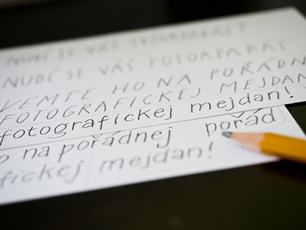 NUDÍ SE VÁŠ FOTOAPARÁT?
NUDÍ SE VÁŠ FOTOAPARÁT
VEMTE HO NA POŘÁDN
FOTOGRAFICKEJ MEJDAN!
fotografickej mejdan!
o na pořádnej pořád
afickej mejdan!